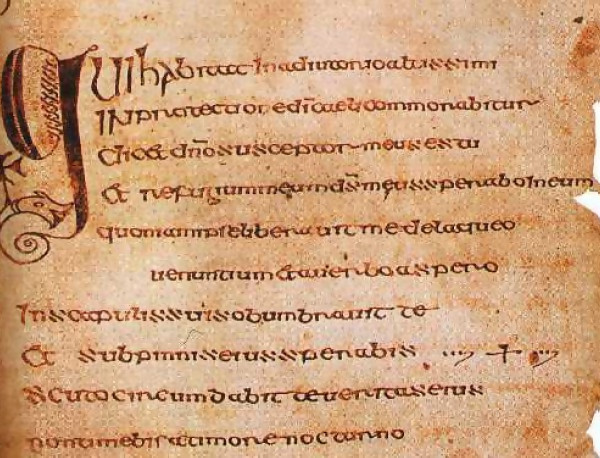 Qui habitat in adiutorio altissimi
in protectione dī caeli commorabitur
dicet dño susceptor meus es tu
et refugium meum ds̄ meus sperabo in eum
quoniam ipse liberauit me de laqueo
uenantium et a uerbo aspero
In scapulis suis obumbrauit te
et sub pinnis eius sperabis
scuto circumdabit te ueritas eius
non timebis a timore nocturno